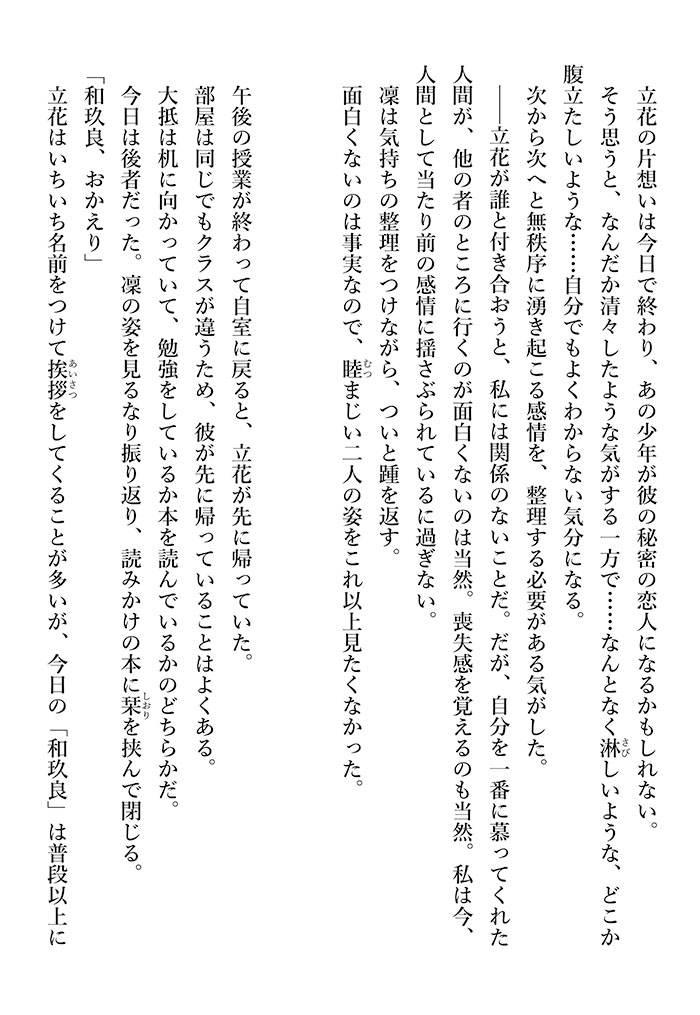 立花の片想いは今日で終わり、あの少年が彼の秘密の恋人になるかもしれない。
そう思うと、なんだか清々したような気がする一方で……なんとなく淋しいような、どこか
腹立たしいような……自分でもよくわからない気分になる。
次から次へと無秩序に湧き起こる感情を、整理する必要がある気がした。
――立花が誰と付き合おうと、私には関係のないことだ。だが、自分を一番に慕ってくれた
人間が、他の者のところに行くのが面白くないのは当然。喪失感を覚えるのも当然。私は今、
人間として当たり前の感情に揺さぶられているに過ぎない。
凜は気持ちの整理をつけながら、ついと踵を返す。
面白くないのは事実なので、睦まじい二人の姿をこれ以上見たくなかった。
午後の授業が終わって自室に戻ると、立花が先に帰っていた。
部屋は同じでもクラスが違うため、彼が先に帰っていることはよくある。
大抵は机に向かっていて、勉強をしているか本を読んでいるかのどちらかだ。
今日は後者だった。凜の姿を見るなり振り返り、読みかけの本に栞を挟んで閉じる。
「和玖良、おかえり」
立花はいちいち名前をつけて挨拶をしてくることが多いが、今日の「和玖良」は普段以上に